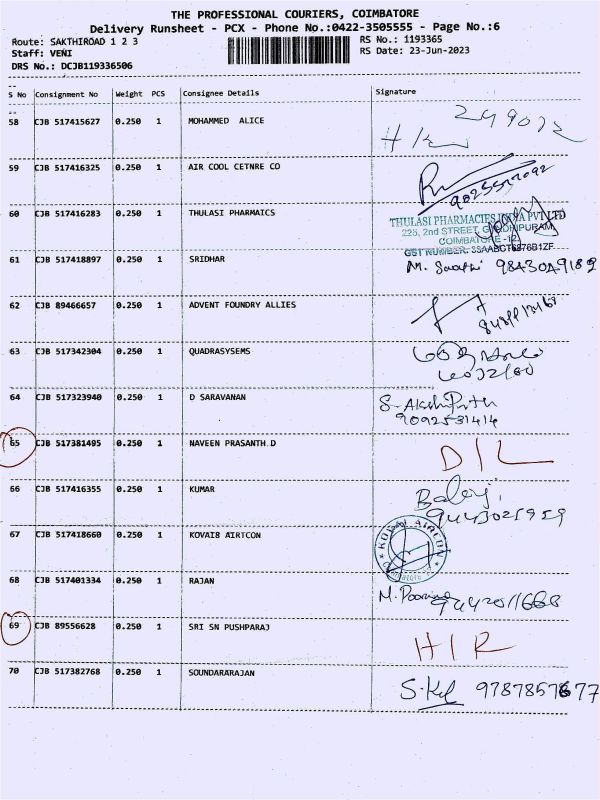 THE PROFESSIONAL COURIERS, COIMBATORE
Delivery Runsheet - PCX - Phone No.:0422-3505555 - Page No.:6
Route: SAKTHIROAD 1 2 3
RS No.: 1193365
Staff: VENI
RS Date: 23-Jun-2023
DRS No.: DCJB119336506
S No Consignment No Weight PCS Consignee Details Signature
58 CJB 517415627 0.250 1 MOHAMMED ALICE
59 CJB 517416325 0.250 1 AIR COOL CETNRE CO
60 CJB 517416283 0.250 1 THULASI PHARMAICS
THULASI PHARMACIES INDIA PVT LTD
225, 2nd STREET, GANDHIPURAM,
COIMBATORE -12
GST NUMBER:
61 CJB 517418897 0.250 1 SRIDHAR
M. 9843049189
62 CJB 89466657 0.250 1 ADVENT FOUNDRY ALLIES
63 CJB 517342304 0.250 1 QUADRASYSEMS
64 CJB 517323940 0.250 1 D SARAVANAN
S. 
9092531414
65 CJB 517381495 0.250 1 NAVEEN PRASANTH.D
D/L
66 CJB 517416355 0.250 1 KUMAR
Balaji
9443025959
67 CJB 517418660 0.250 1 KOVAI8 AIRTCON
KOVAI AIRCON
68 CJB 517401334 0.250 1 RAJAN
M. 9442011668
69 CJB 89556628 0.250 1 SRI SN PUSHPARAJ
H/R
70 CJB 517382768 0.250 1 SOUNDARARAJAN
9787857677